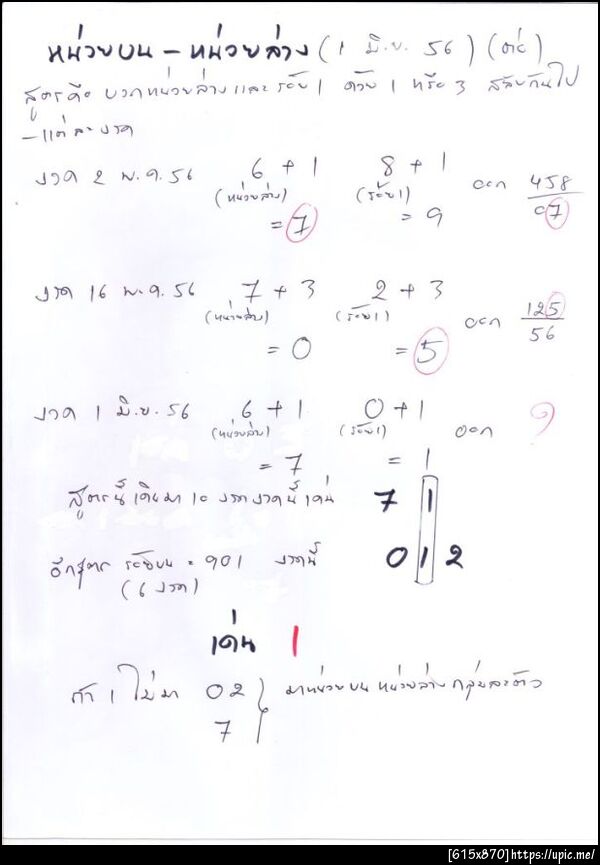 หน่วยบน - หน่วยล่าง (1 มิ.ย. 56) (ต่อ)
สูตรคือ บวกหน่วยล่างและร้อย 1 ด้วย 1 หรือ 3 สลับกันไป
แต่ละงวด
งวด 2 พ.ค. 56 6 + 1 8 + 1 ออก 458
(หน่วยล่าง) (ร้อย 1) 07
= 7 = 9
งวด 16 พ.ค. 56 7 + 3 2 + 3 ออก 125
(หน่วยล่าง) (ร้อย 1) 56
= 0 = 5
งวด 1 มิ.ย. 56 6 + 1 0 + 1 ออก ?
(หน่วยล่าง) (ร้อย 1)
= 7 = 1
สูตรนี้เดินมา 10 งวด งวดนี้เด่น 7 1
อีกสูตร ร้อยบน = 901 งวดนี้ 0 1 2
(6 งวด)
เด่น 1
ถ้า 1 ไม่มา 02 } มาหน่วยบน หน่วยล่าง กลุ่มละตัว
7
[615x870]https://upic.me/